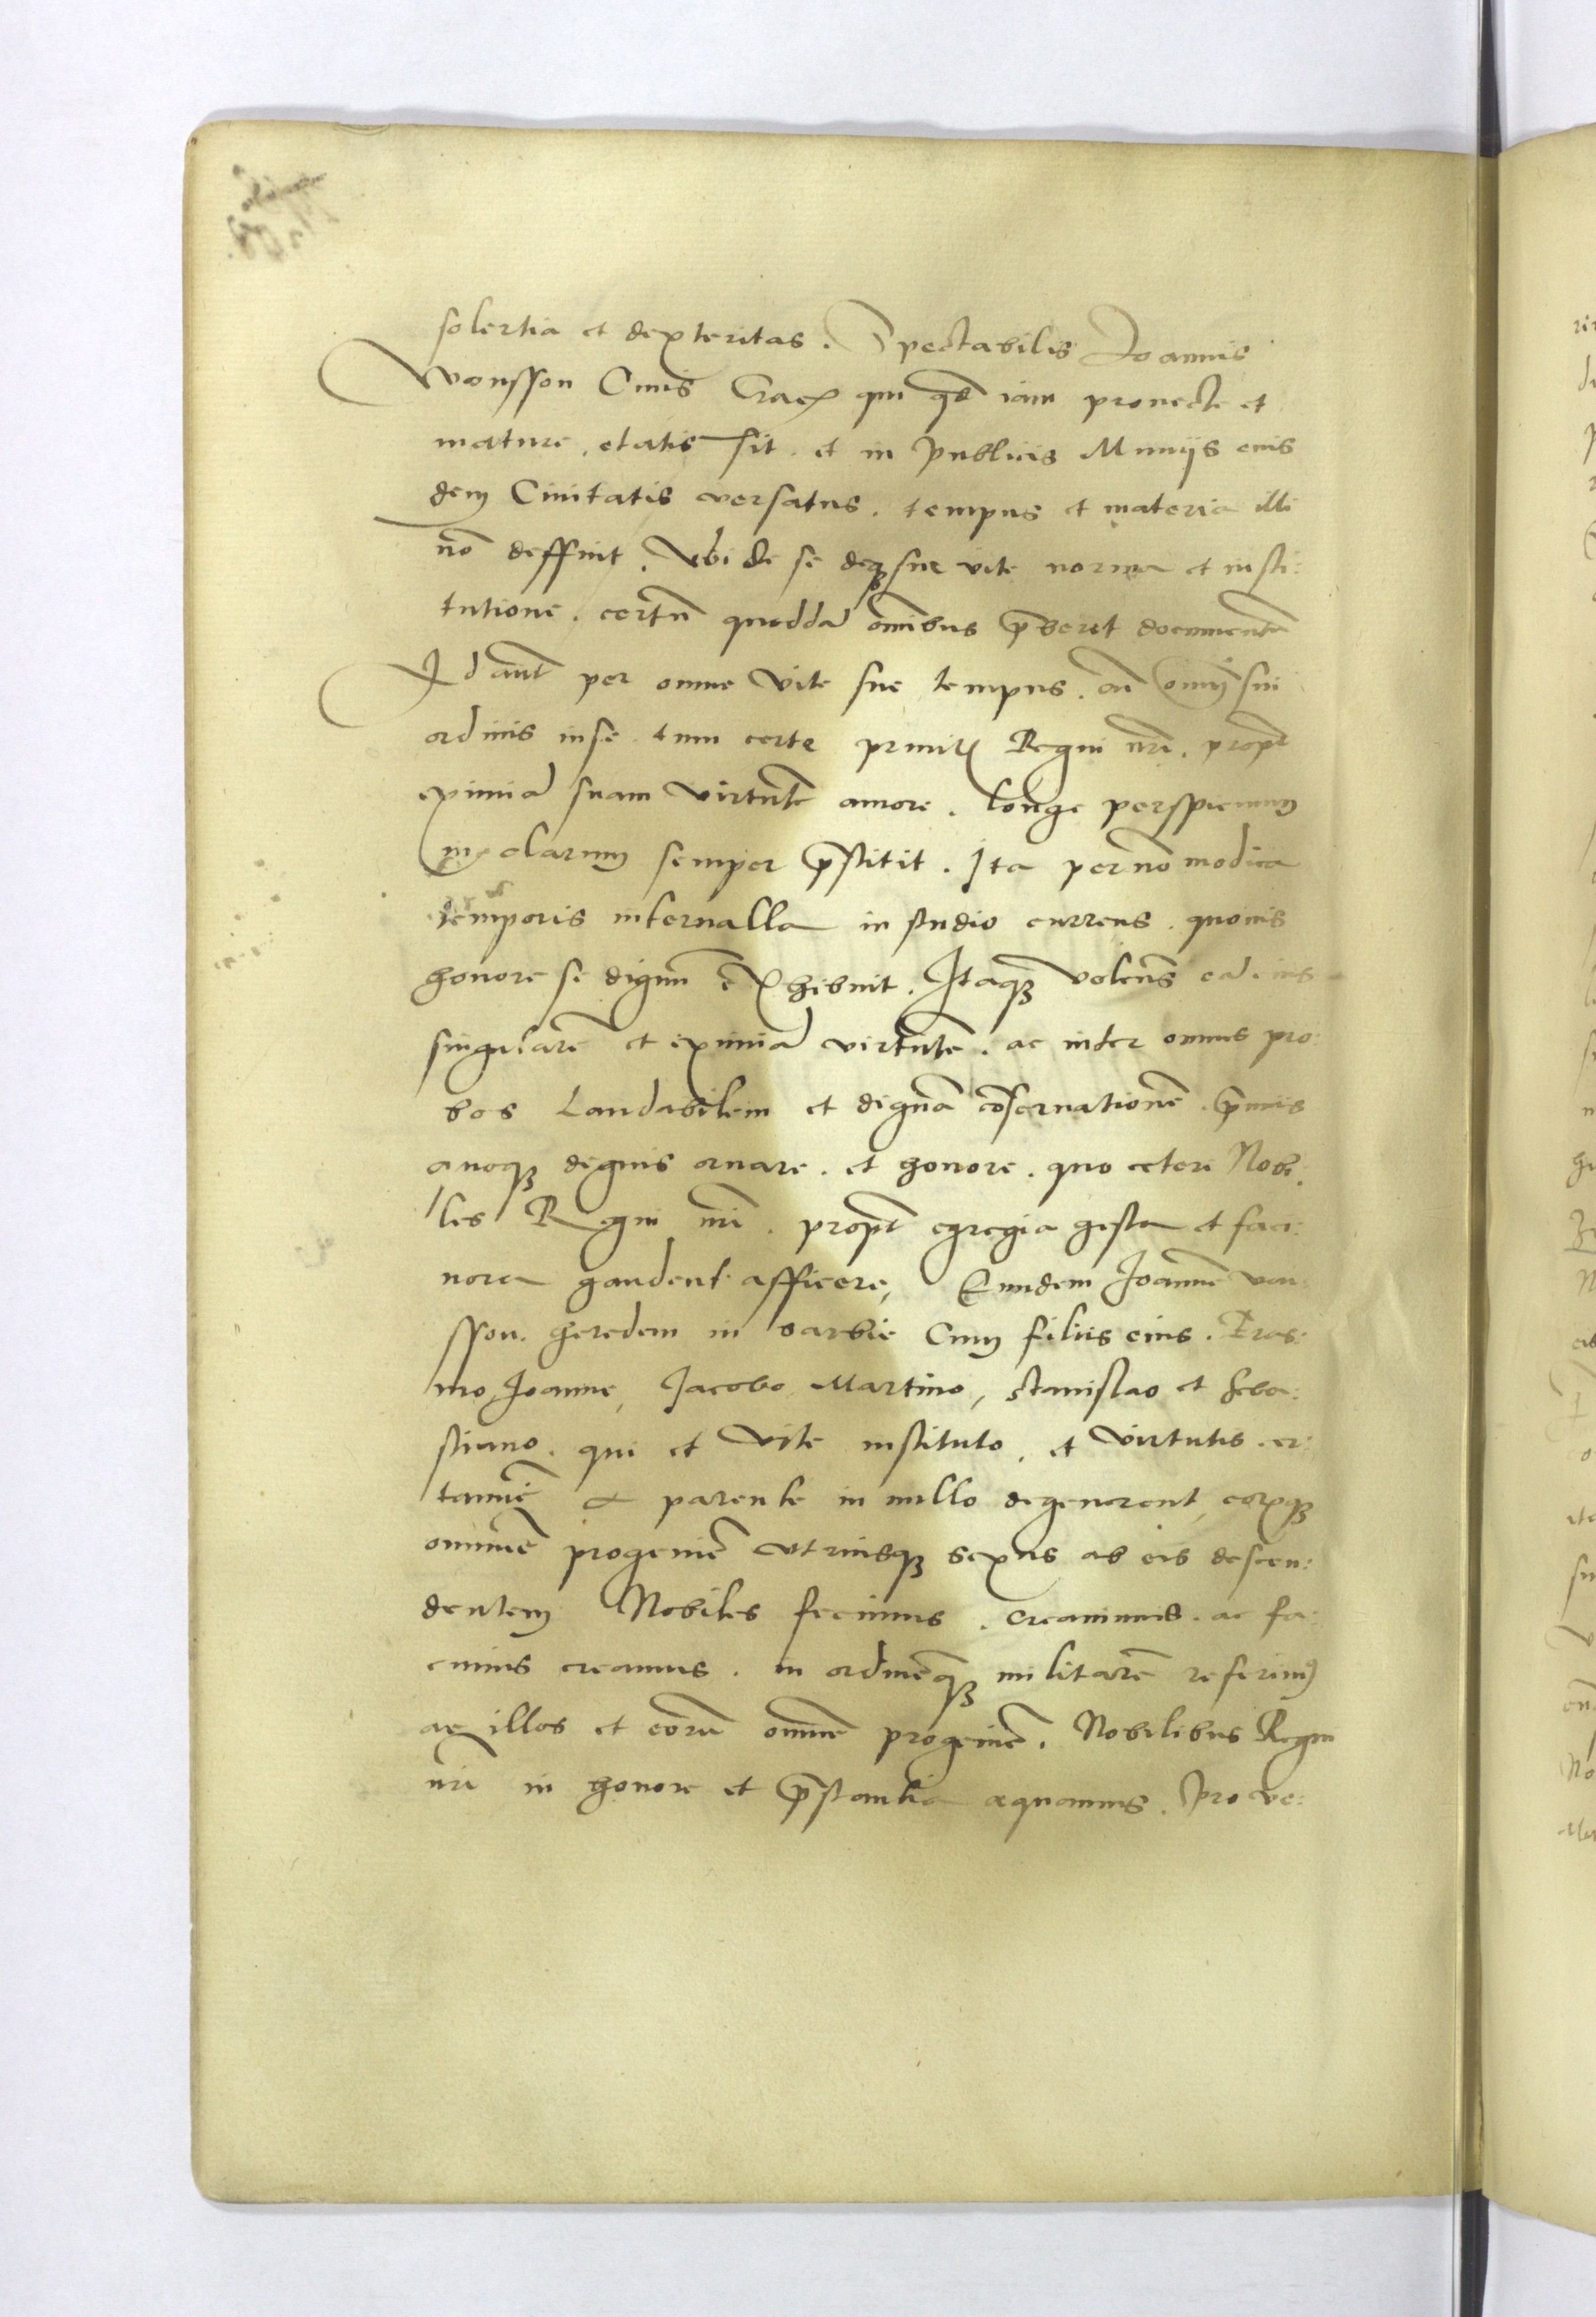 solertia et dexteritas. Spectabilis Joannis
Wonsson Ciuis Crac qui qd iam prouecte et
mature. etatis sit. et in publicis Munijs eius
dem Ciuitatis versatus. tempus et materia illi
nō deffuit. Vbi de se deqȝ sue vite norma et insti:
tutione. certū quoddā omībus p̄beret documentū
Id aūt per omne vite sue tempus. cū omnj sui
ordinis in se. tum certe Regni nrī. propt
eximiā suam virtutē amore. longe perspicuum
clarum semper p̄stitit. Ita per nō modica
temporis interualla in studio currens. quouis
honore se dignū exhibuit. Itaqȝ volens eā eius
singularē et eximiā virtutē. ac inter omnes pro:
bos laudabilem et dignā cōseruationē. p̄mijs
dignis ornare. et honore. quo ceteri Nobi:
les Regni nrī. propt egregia gesta et faci:
nora gaudent afficere, Eundem Joannē von
sson. heredem in barbie Cum filiis eius. Eras:
mo, Joanne, Jacobo, Martino, Stanislao et Seba:
stiano. qui et vite instituto, et virtutis. cer
tamē a parente in nullo degenerent, eorqȝ
omnē progeniē vtriusqȝ sexus ab eis descen:
dentem Nobiles fecimus. creauimus. ac fa:
cimus creamus. in ordinēqȝ militarē referimꝰ
ac illos et eorū omnē progeniē. Nobilibus Regni
nrī in honore et p̄stantia aequamus. Pro ve: